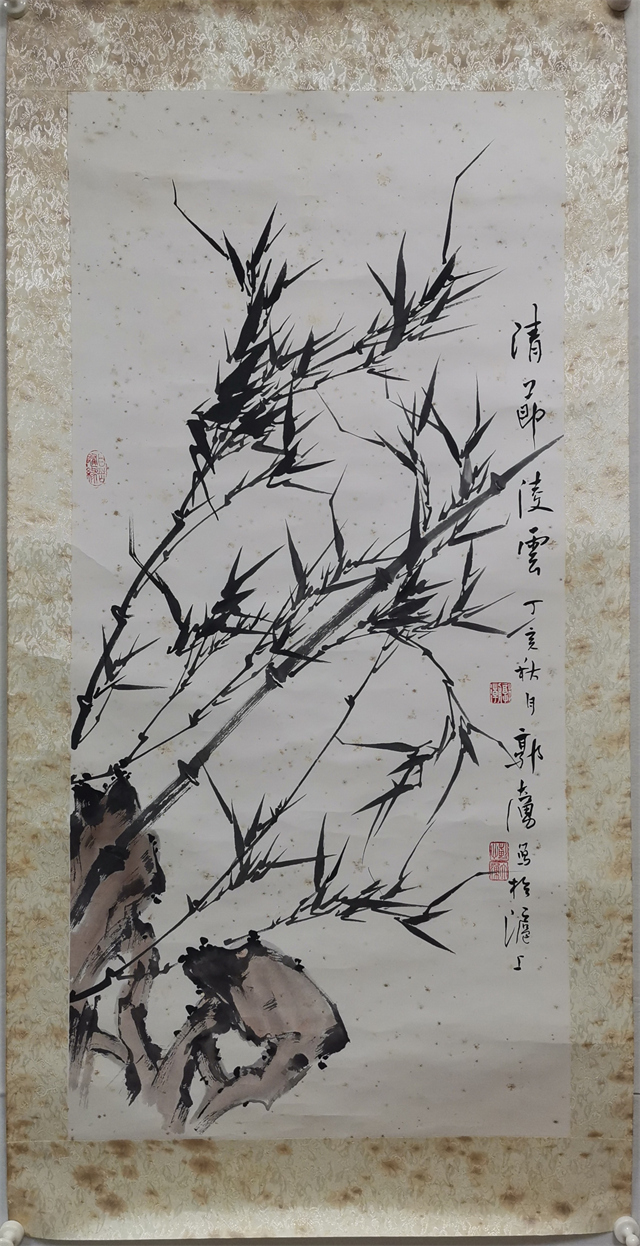 清節淩雲丁亥秋月郭寫於滬上